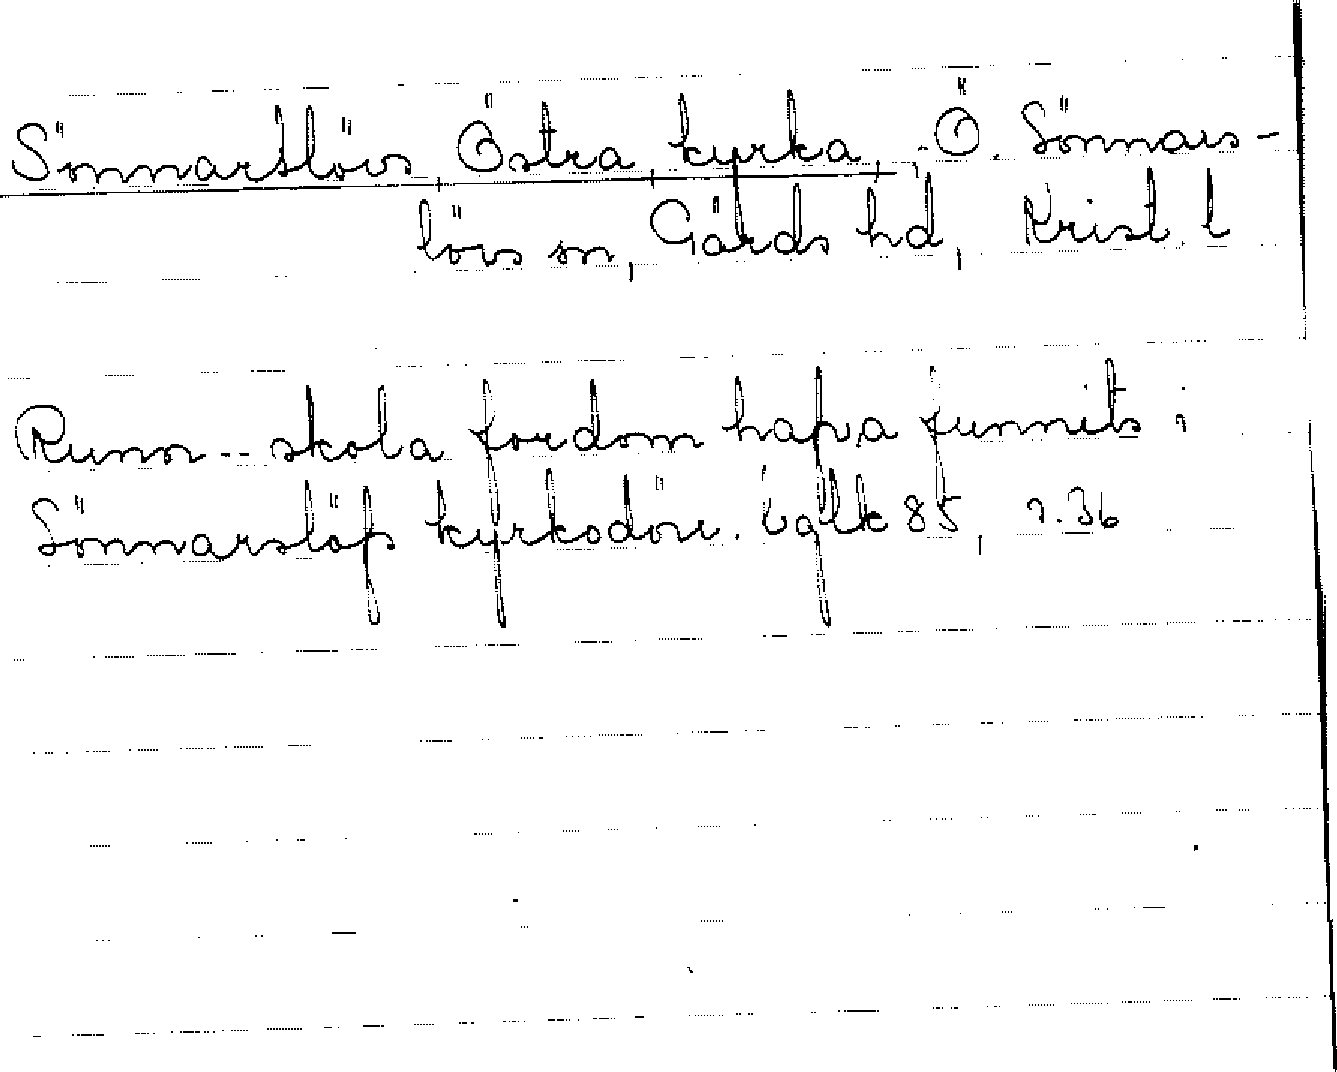 Sönnarslövs, Östra, kyrka, Ö. Sönnars-
lövs sn, Gärds hd, Krist. l
Runor -- skola fordom hafva funnits i
Sönnarslöfs kyrkodörr. 85, s. 36